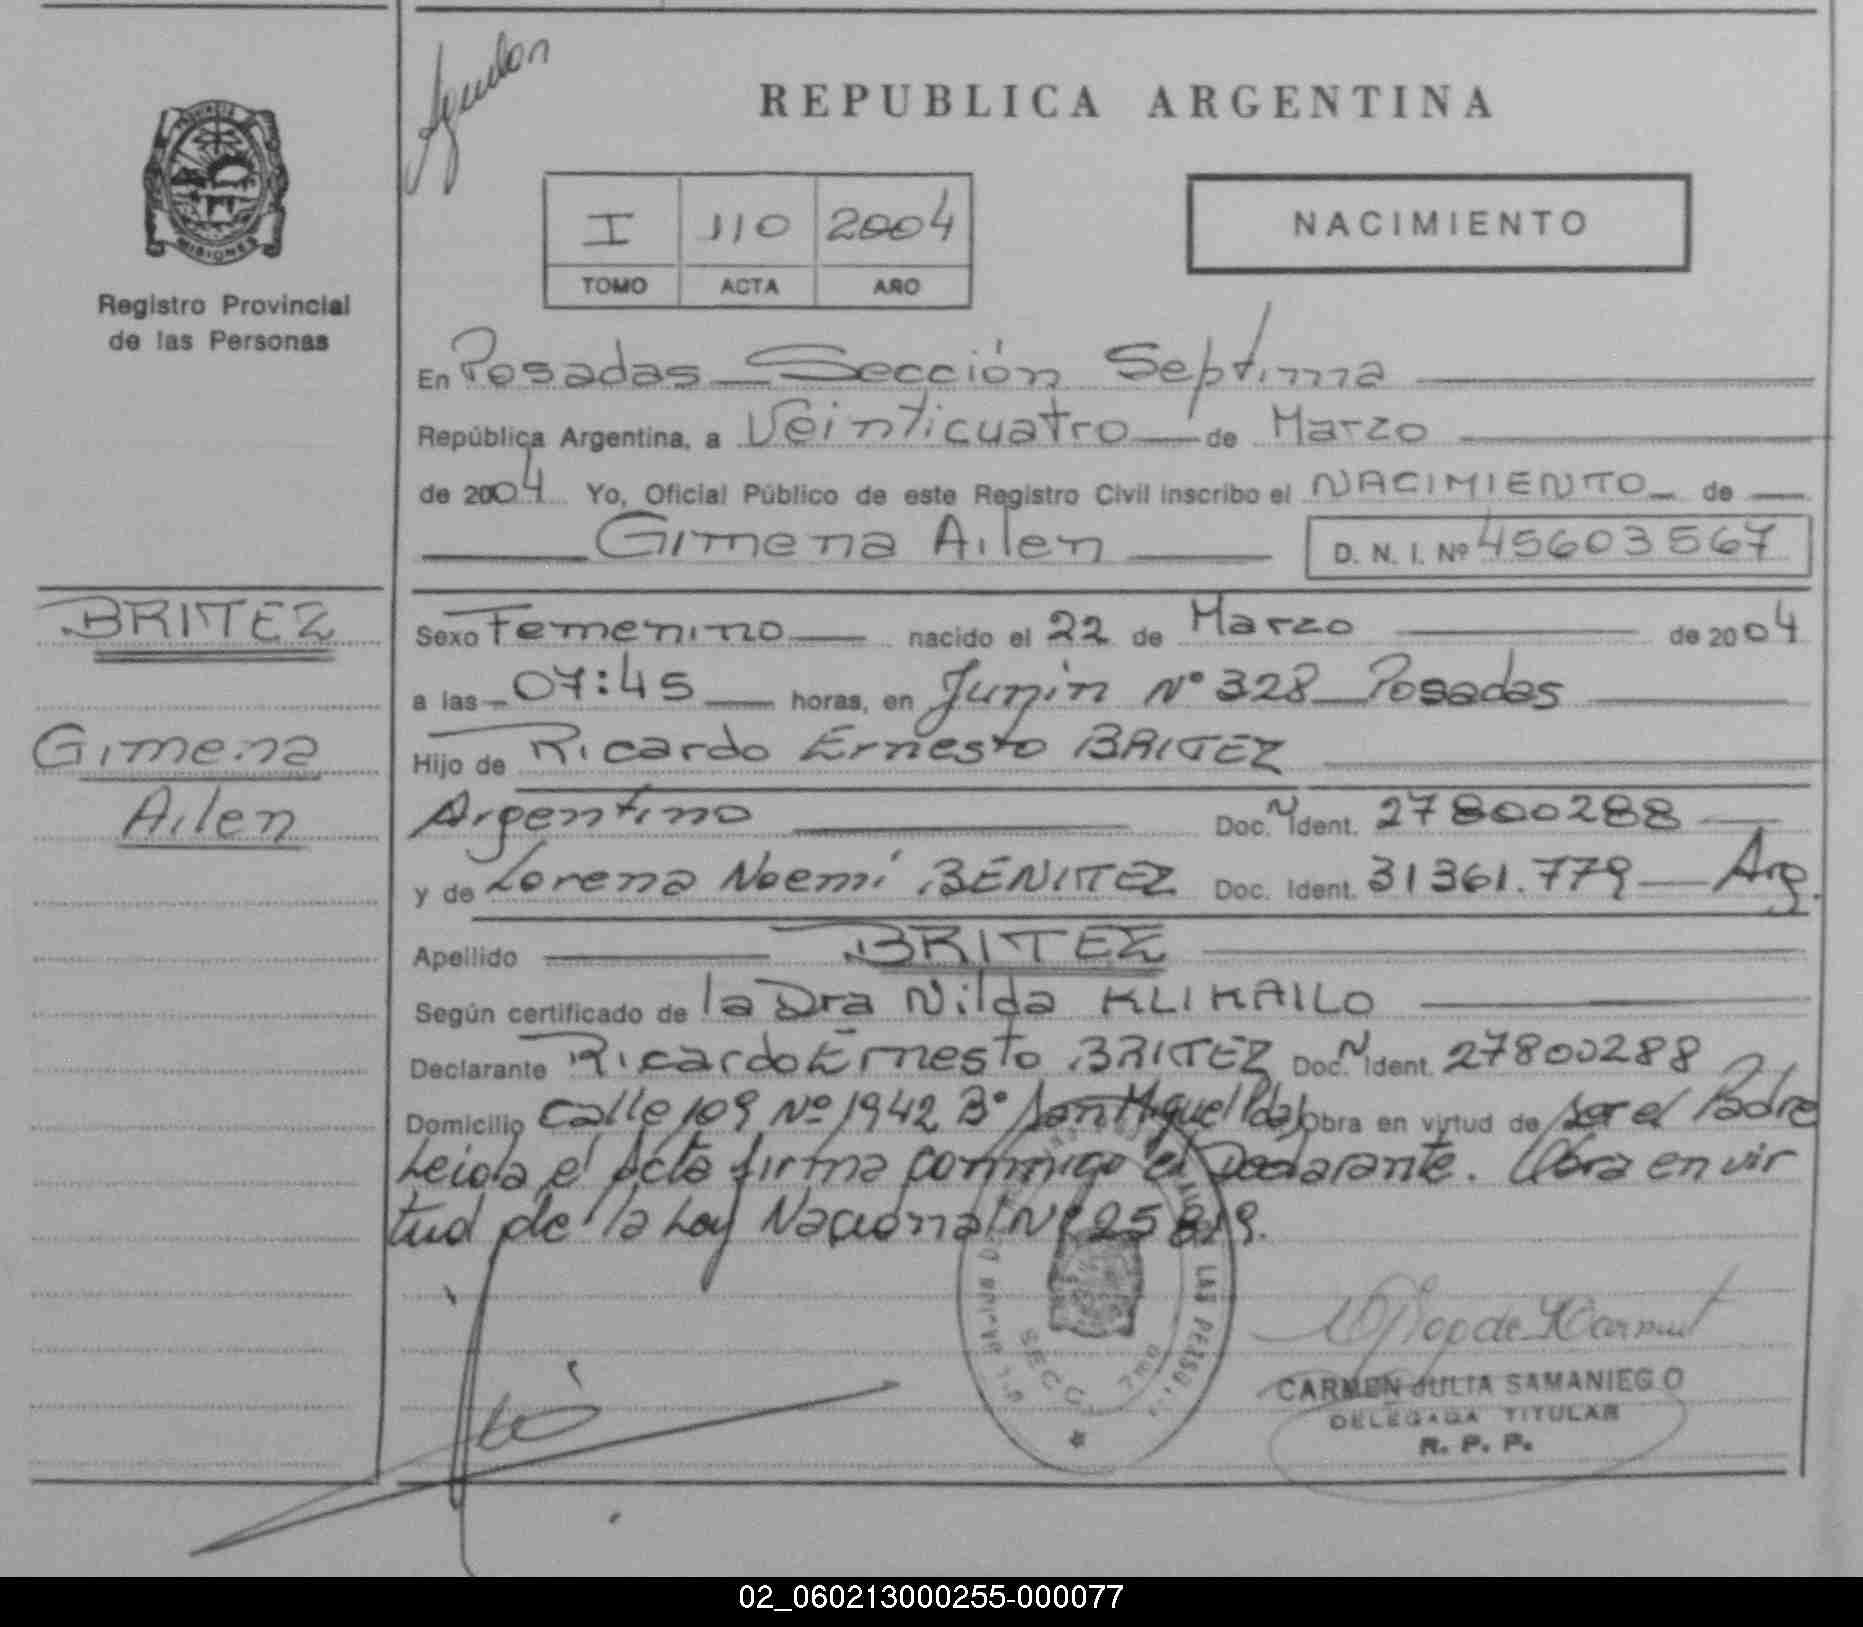 REPUBLICA ARGENTINA
PROVINCIA
MISIONES
Registro Provincial
de las Personas
I 110 2004
TOMO ACTA AÑO
NACIMIENTO
En Posadas Sección Septima
República Argentina, a Veinticuatro de Marzo
de 2004 Yo, Oficial Público de este Registro Civil inscribo el NACIMIENTO de
Gimena Ailen D. N. I. Nº 45603567
BRITEZ
Gimena
Ailen
Sexo Femenino nacido el 22 de Marzo de 2004
a las 07:45 horas, en Junin Nº 328 Posadas
Hijo de Ricardo Ernesto BRITEZ
Argentino Doc. N Ident. 27800288
y de Lorena Noemí BENITEZ Doc. Ident. 31361.779 Arg.
Apellido BRITEZ
Según certificado de la Dra Nilda KLIKAILO
Declarante Ricardo Ernesto BRITEZ Doc. N Ident. 27800288
Domicilio Calle 109 Nº 1942 Bº San Miguel Pdas Obra en virtud de ser el Padre
Leida el Acta firma conmigo el Declarante. Obra en vir
tud de la Ley Nacional Nº 25819.
LAS PERSO
SECC. 7ma
CARMEN JULIA SAMANIEGO
DELEGADA TITULAR
R. P. P.
02_060213000255-000077